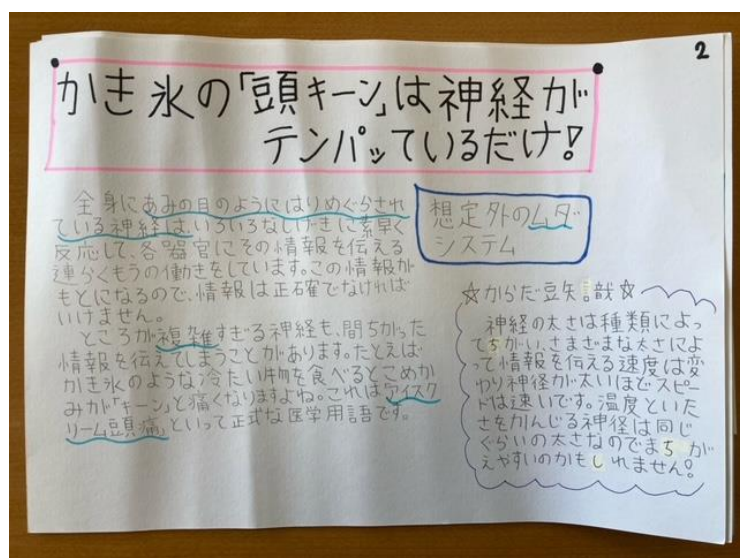 2
かき氷の「頭キーン」は神経が
テンパッているだけ!
全身にあみの目のようにはりめぐらされ
ている神経は、いろいろなしげきに素早く
反応して、各器官にその情報を伝える
連らくもうの働きをしています。この情報が
もとになるので、情報は正確でなければ
いけません。
ところが複雑すぎる神経も、間ちがった
情報を伝えてしまうことがあります。たとえば
かき氷のような冷たい物を食べるとこめか
みが「キーン」と痛くなりますよね。これは「アイスク
リーム頭痛」といって正式な医学用語です。
想定外のムダ
システム
☆からだ豆知識☆
神経の太さは種類によっ
てちがい、さまざまな太さによ
って情報を伝える速度は変
わり神径が太いほどスピー
ドは速いです。温度といた
さをかんじる神経は同じ
ぐらいの太さなのでまちが
えやすいのかもしれません!